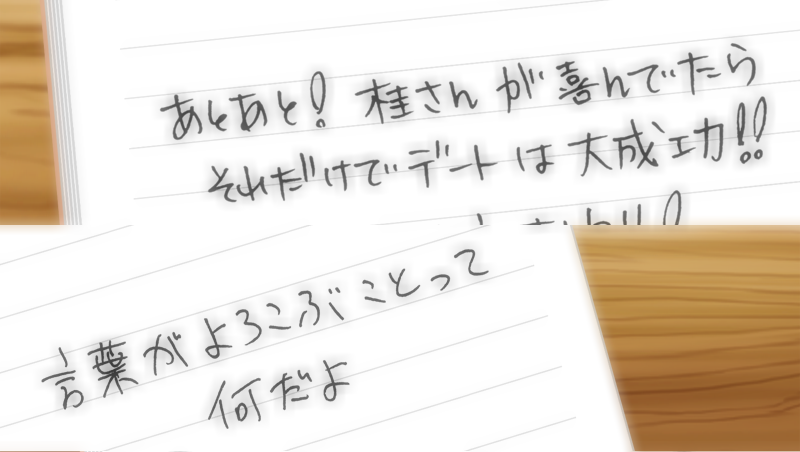 あとあと! 桂さんが喜んでたら
それだけでデートは大成功!!
言葉がよろこぶことって
何だよ